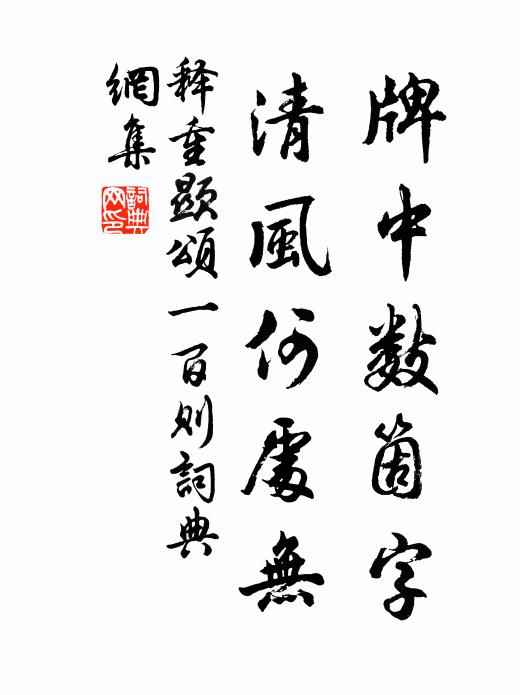 牌中數箇字
清風何處無
释重顯頌一百則詞典
網集
詞典
网印